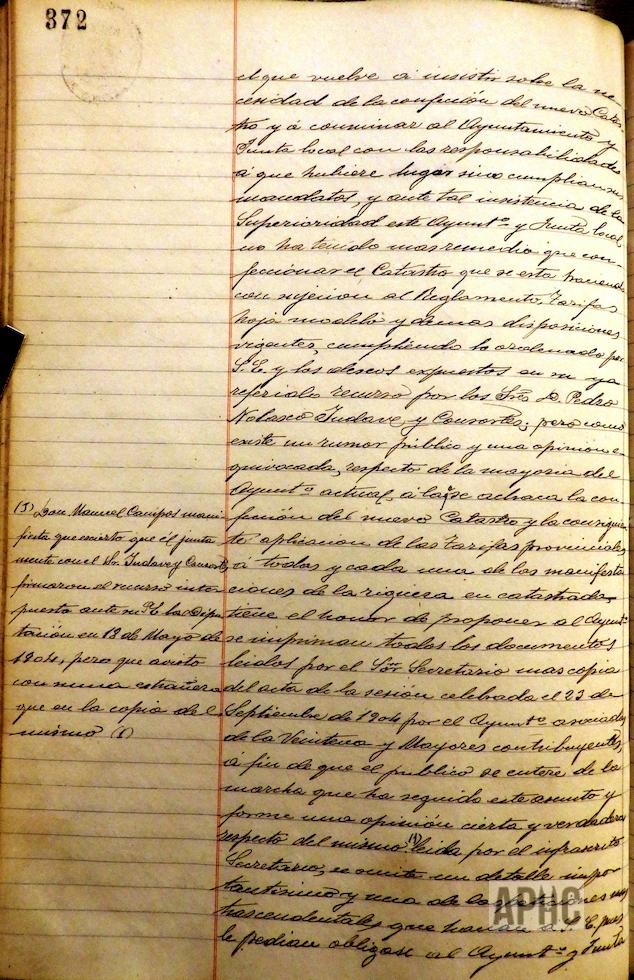 372
el que vuelve á insistir sobre la ne-
cesidad de la confección del nuevo Catas-
tro y á conminar al Ayuntamiento y
Junta local con las responsabilidades
á que hubiere lugar sino cumplian sus
mandatos, y ante tal insistencia de la
Superioridad este Ayuntº y Junta local
no ha tenido mas remedio que con-
feccionar el Catastro que se está haciendo
con sujecion al Reglamento, Tarifas
hoja modelo y demas disposiciones
vigentes, cumpliendo lo ordenado por
S.E. y los deseos expuestos en su ya
referido recurso por los Sres D. Pedro
Nolasco Yudave, y Consortes; pero como
existe un rumor público y una opinion e
quivocada, respecto de la mayoria del
Ayuntº actual, á la q.e se achaca la con-
fección del nuevo Catastro y la consiguien
te aplicacion de las tarifas provinciales
á todas y cada una de las manifesta
ciones de la riqueza en catastrada,
tiene el honor de proponer al Ayuntº
se impriman todos los documentos
leidos por el Sor Secretario mas copia
del acta de la sesión celebrada el 23 de
Septiembre de 1904 por el Ayuntº asociado
de la Veintena y Mayores contribuyentes,
á fin de que el publico se entere de la
marcha que ha seguido este asunto y
forme una opinión cierta y verdadera
respecto del mismo (1) leida por el infrascrito
Secretario, se omite un detalle impor
tantisimo y una de las peticiones mas
trascendentales que hacian a S.E. pues
le pedian obligase al Ayuntº y Junta
(1) Don Manuel Campos mani
fiesta que es cierto que él junta
mente con el Sr. Yudave y Consortes
firmaron el recurso inter
puesto ante S.E. la Dipu
tación en 18 de Mayo de
1904, pero que avisto
con suma estrañeza
que en la copia del
mismo (1)
APHC